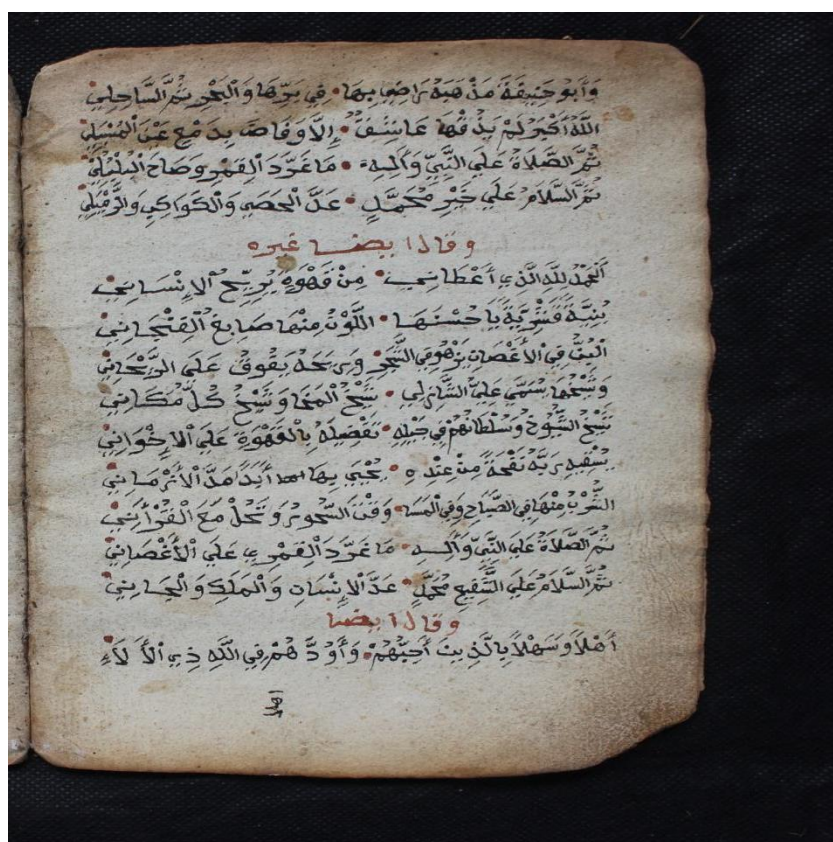 وَأَبُو حَنِيفَةْ مَذْهَبُهْ رَاضِي بِهَا • فِي بَرِّهَا وَالْبَحْرِ ثُمَّ السَّاحِلِي
اللَّهُ أَكْبَرُ لَمْ يَذُقْهَا عَاشِقٌ • إِلَّا وَفَاضَ بِدَمْعِ عَيْنِ الْمُسْبَلِي
ثُمَّ الصَّلَاةُ عَلَى النَّبِيِّ وَآلِهِ • مَا غَرَّدَ الْقِمْرِ وَصَاحَ الْبُلْبُلِي
ثُمَّ السَّلَامُ عَلَى خَيْرِ مُحَمَّدٍ • عَدَّ الْحَصَى وَالْكَوَاكِبِ وَالرَّمْلِي
وقال ايضا غيره
اَلْحَمْدُ لِلَّهِ الَّذِي أَعْطَانِي • مِنْ قَهْوَةٍ يُرِيحُ الْإِنْسَانِي
بُنِيَّةْ قِشْرِيَّةْ يَا حُسْنَهَا • اللَّوْنُ مِنْهَا صَابِغَ الْفِنْجَانِي
الْبُنُّ فِي الْأَغْصَانِ يَزْهُو فِي الشَّجَرِ • وَرِيحَهُ يَفُوقُ عَلَى الرَّيْحَانِي
وَشَيْخُهَا يُسَمَّى عَلِيَّ الشَّاذِلِي • شَيْخُ الْمَخَا وَشَيْخُ كُلِّ مَكَانِي
شَيْخُ الشُّيُوخْ وَسُلْطَانُهُمْ فِي جِيلِهِ • تَفْضِيلُهُ بِالْقَهْوَةِ عَلَى الْإِخْوَانِي
يَسْقِيهِ رَبَّهُ نَفْحَةً مِنْ عِنْدِهِ • يُحْيَى بِهَا أَبَدًا مَدَّ الْأَزْمَانِي
الشُّرْبُ مِنْهَا فِي الصَّبَاحِ وَفِي الْمَسَا • وَقْتَ السُّحُورِ وَتَحْلُ مَعَ الْقُرْآنِي
ثُمَّ الصَّلَاةُ عَلَى النَّبِيِّ وَآلِهِ • مَا غَرَّدَ الْقِمْرِي عَلَى الْأَغْصَانِي
ثُمَّ السَّلَامُ عَلَى الشَّفِيعِ مُحَمَّدٍ • عَدَّ الْإِنْسَانِ وَالْمَلَكِ وَالْجَانِي
وقال ايضا
أَهْلًا وَسَهْلًا بِالَّذِينَ أُحِبُّهُمْ • وَأَوَدُّهُمْ فِي اللَّهِ ذِي الْآلَاءِ
اهلا